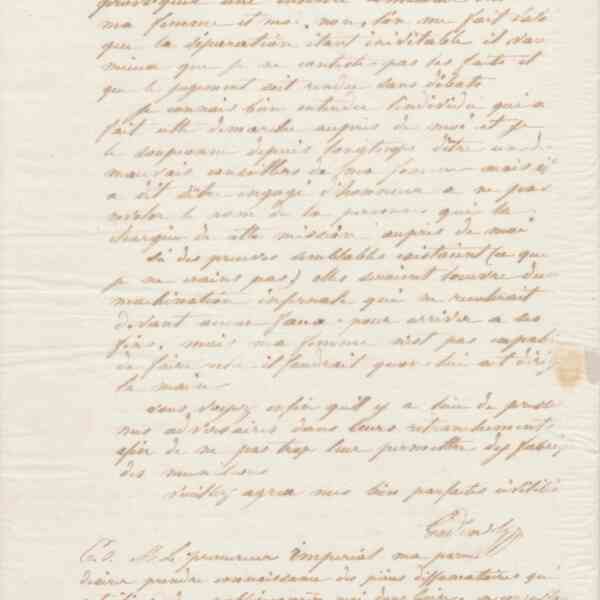 provoquer une
ma femme et moi, non, l'on me fait
que la séparation étant inévitable il vau
mieux que je ne conteste pas les faits et
que le jugement soit rendu sans débats
Je connais bien entendu l'individu qui a
fait cette démarche auprès de moi et je
le soupconne depuis longtemps d'être un de
mauvais conseillers de ma femme mais il
a dit s'être engagé d'honneur a ne pas
révéler le nom de la personne qui la
chargée de cette mission auprès de moi
Si des preuves semblables existaient (ce que
je ne crains pas) elles seraient l'œuvre d'une
machination infernale qui ne reculerait
devant aucun faux pour arriver a ses
fins. mais ma femme n'est pas capable
de faire il faudrait quon lui eut dirigé
la main
vous voyez enfin qu'il y a lieu de presser
nos adversaires dans leurs retranchements
afin de ne pas trop leur permettre de
des
Veuillez agréer mes bien parfaites civilités
P.S. M. Le procureur impérial ma
désire prendre connaissance des pièces diffamatoires qui